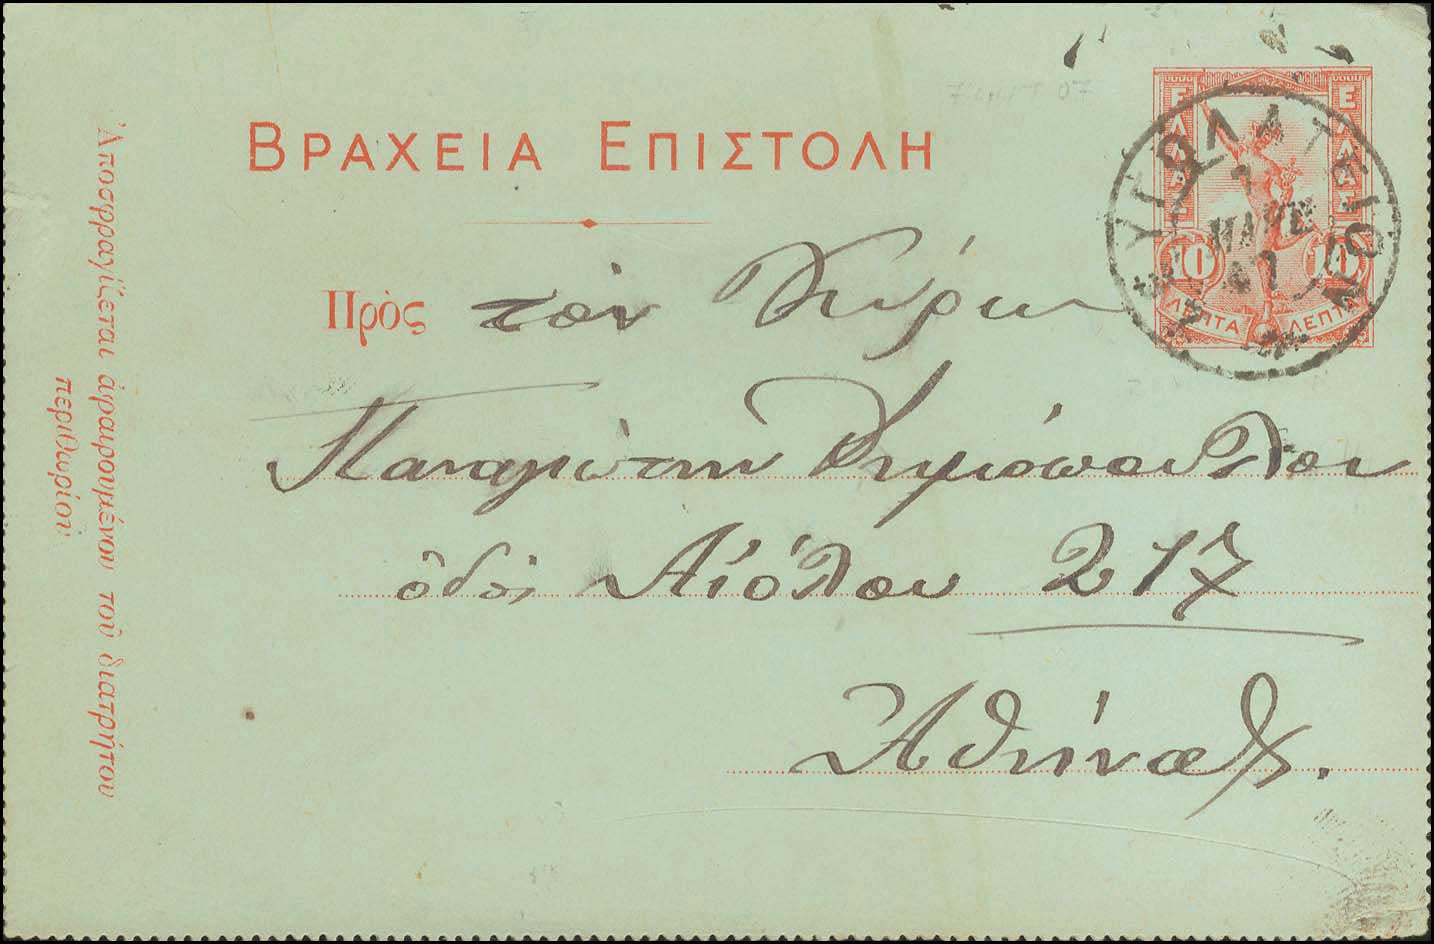 ΒΡΑΧΕΙΑ ΕΠΙΣΤΟΛΗ
ΕΛΛΑΣ ΕΛΛΑΣ
10 10
ΛΕΠΤΑ ΛΕΠΤΑ
ΜΑΡΤ
07
Πρὸς τὸν Κύριον
Παναγιώτην Δημόπουλον
ὁδός Αἰόλου 217
Ἀθήνας.
Ἀποσφραγίζεται ἀφαιρουμένου τοῦ διατρήτου
περιθωρίου